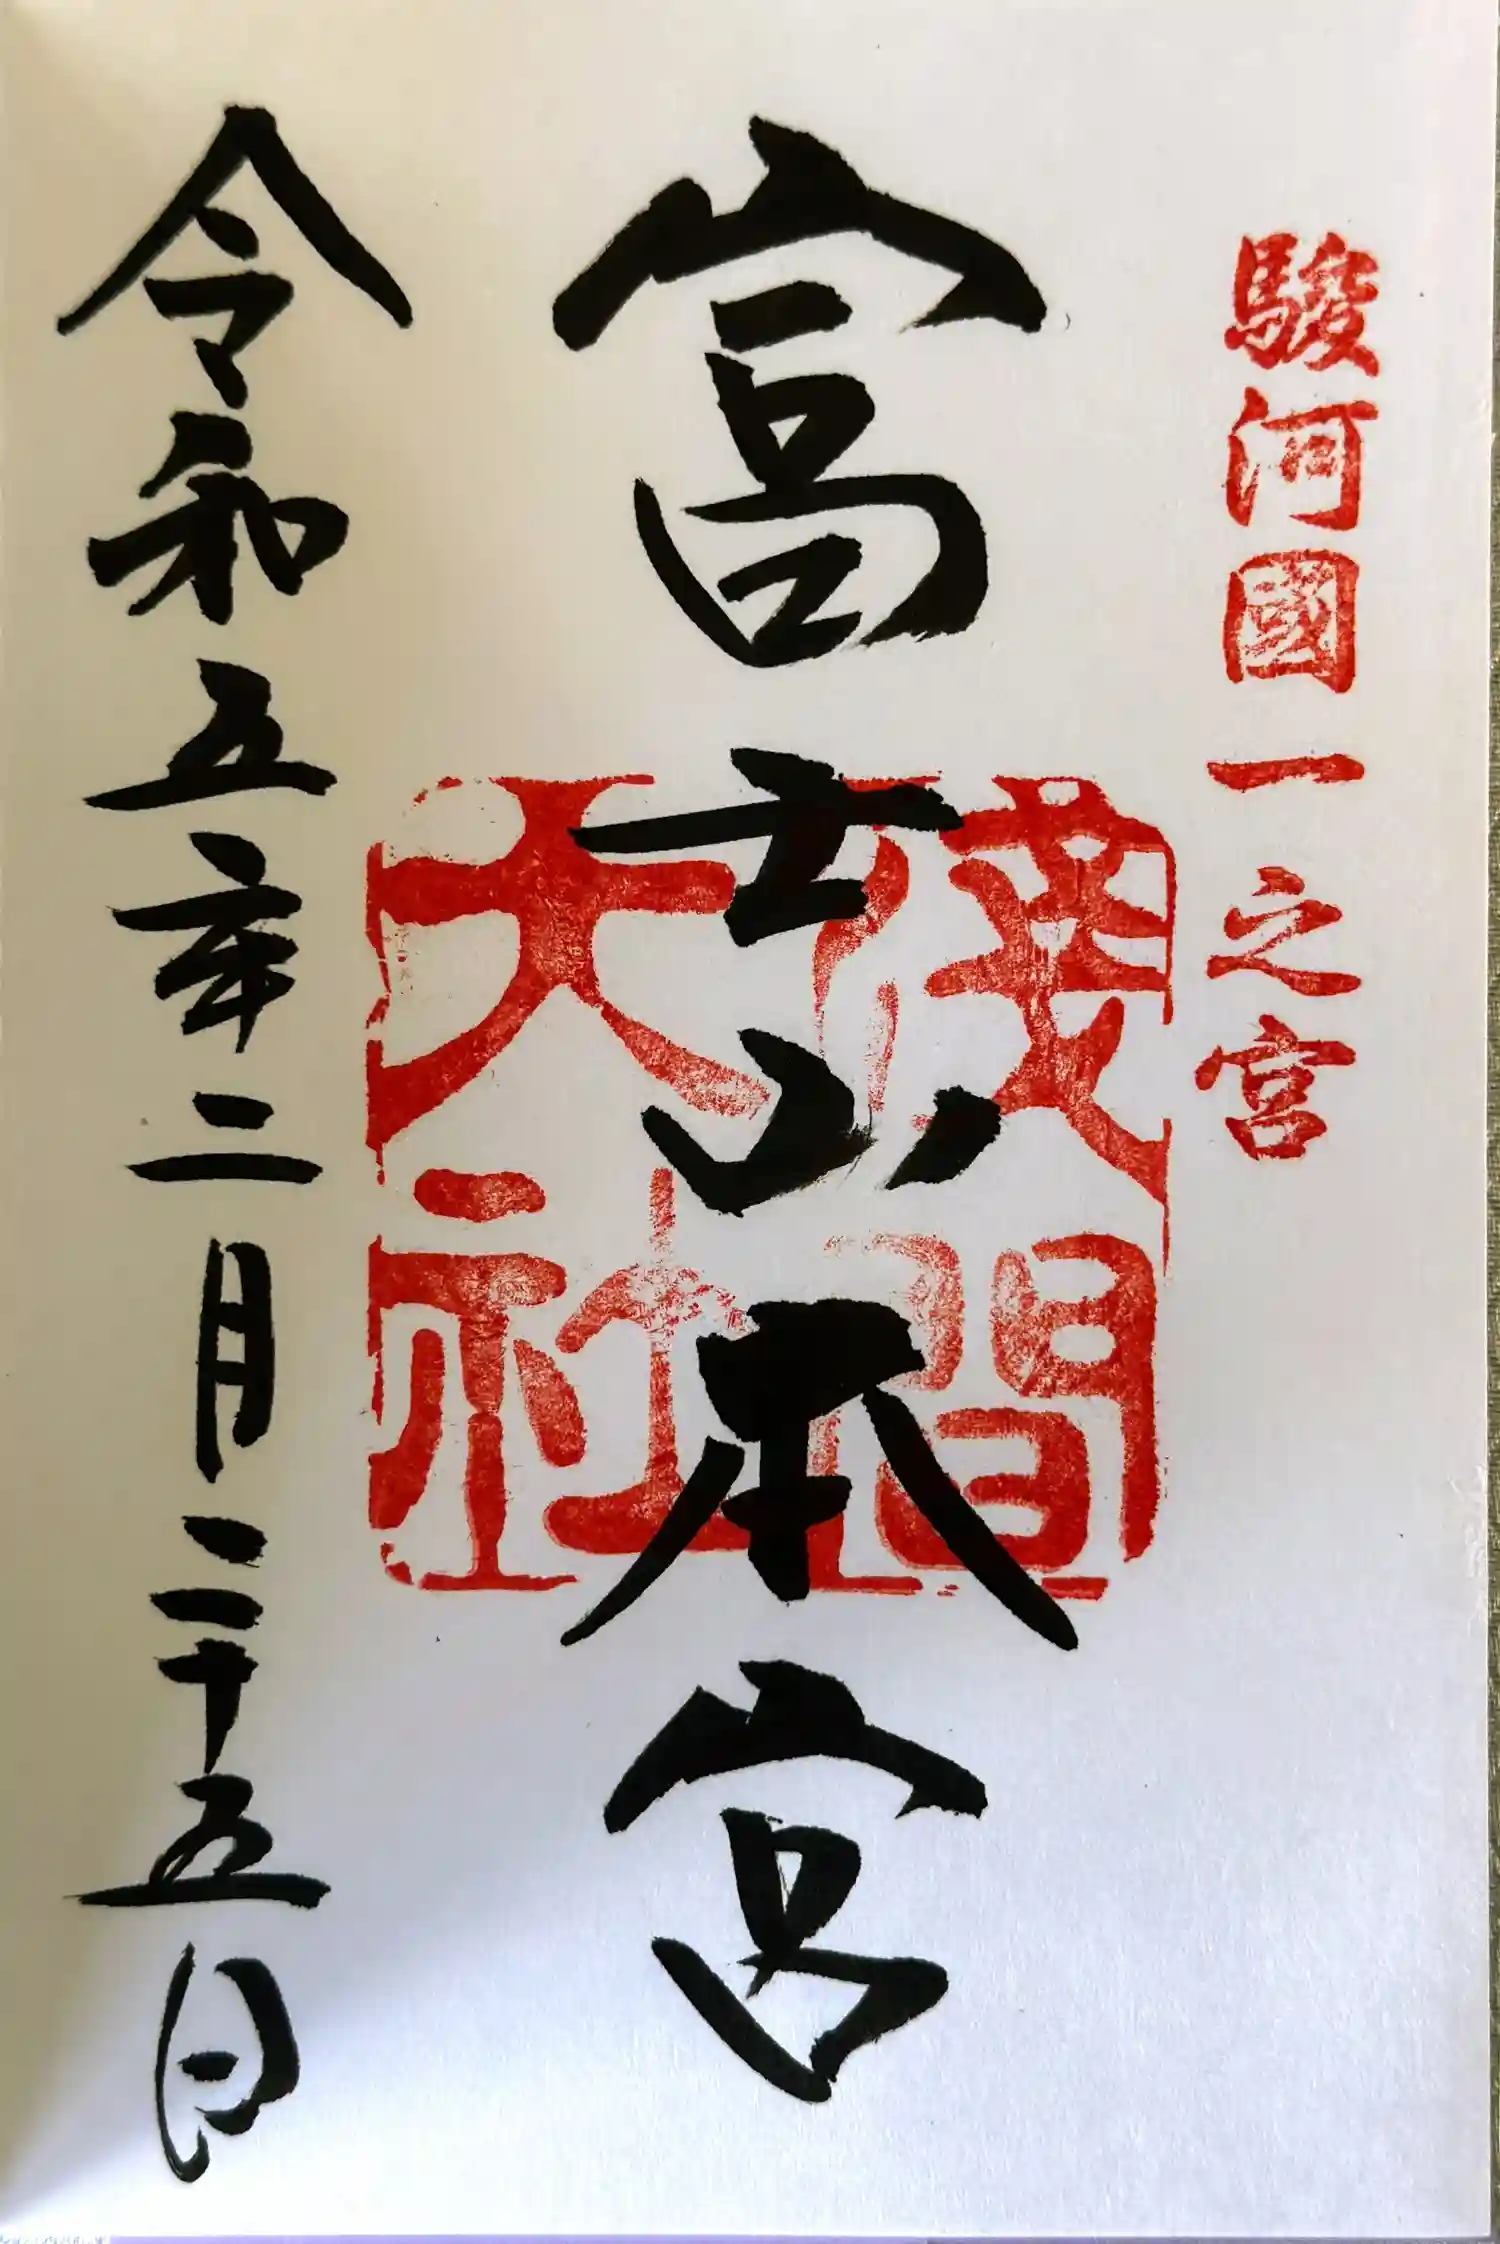 駿河國一之宮
富士山本宮
浅間大社
令和五年二月二十五日